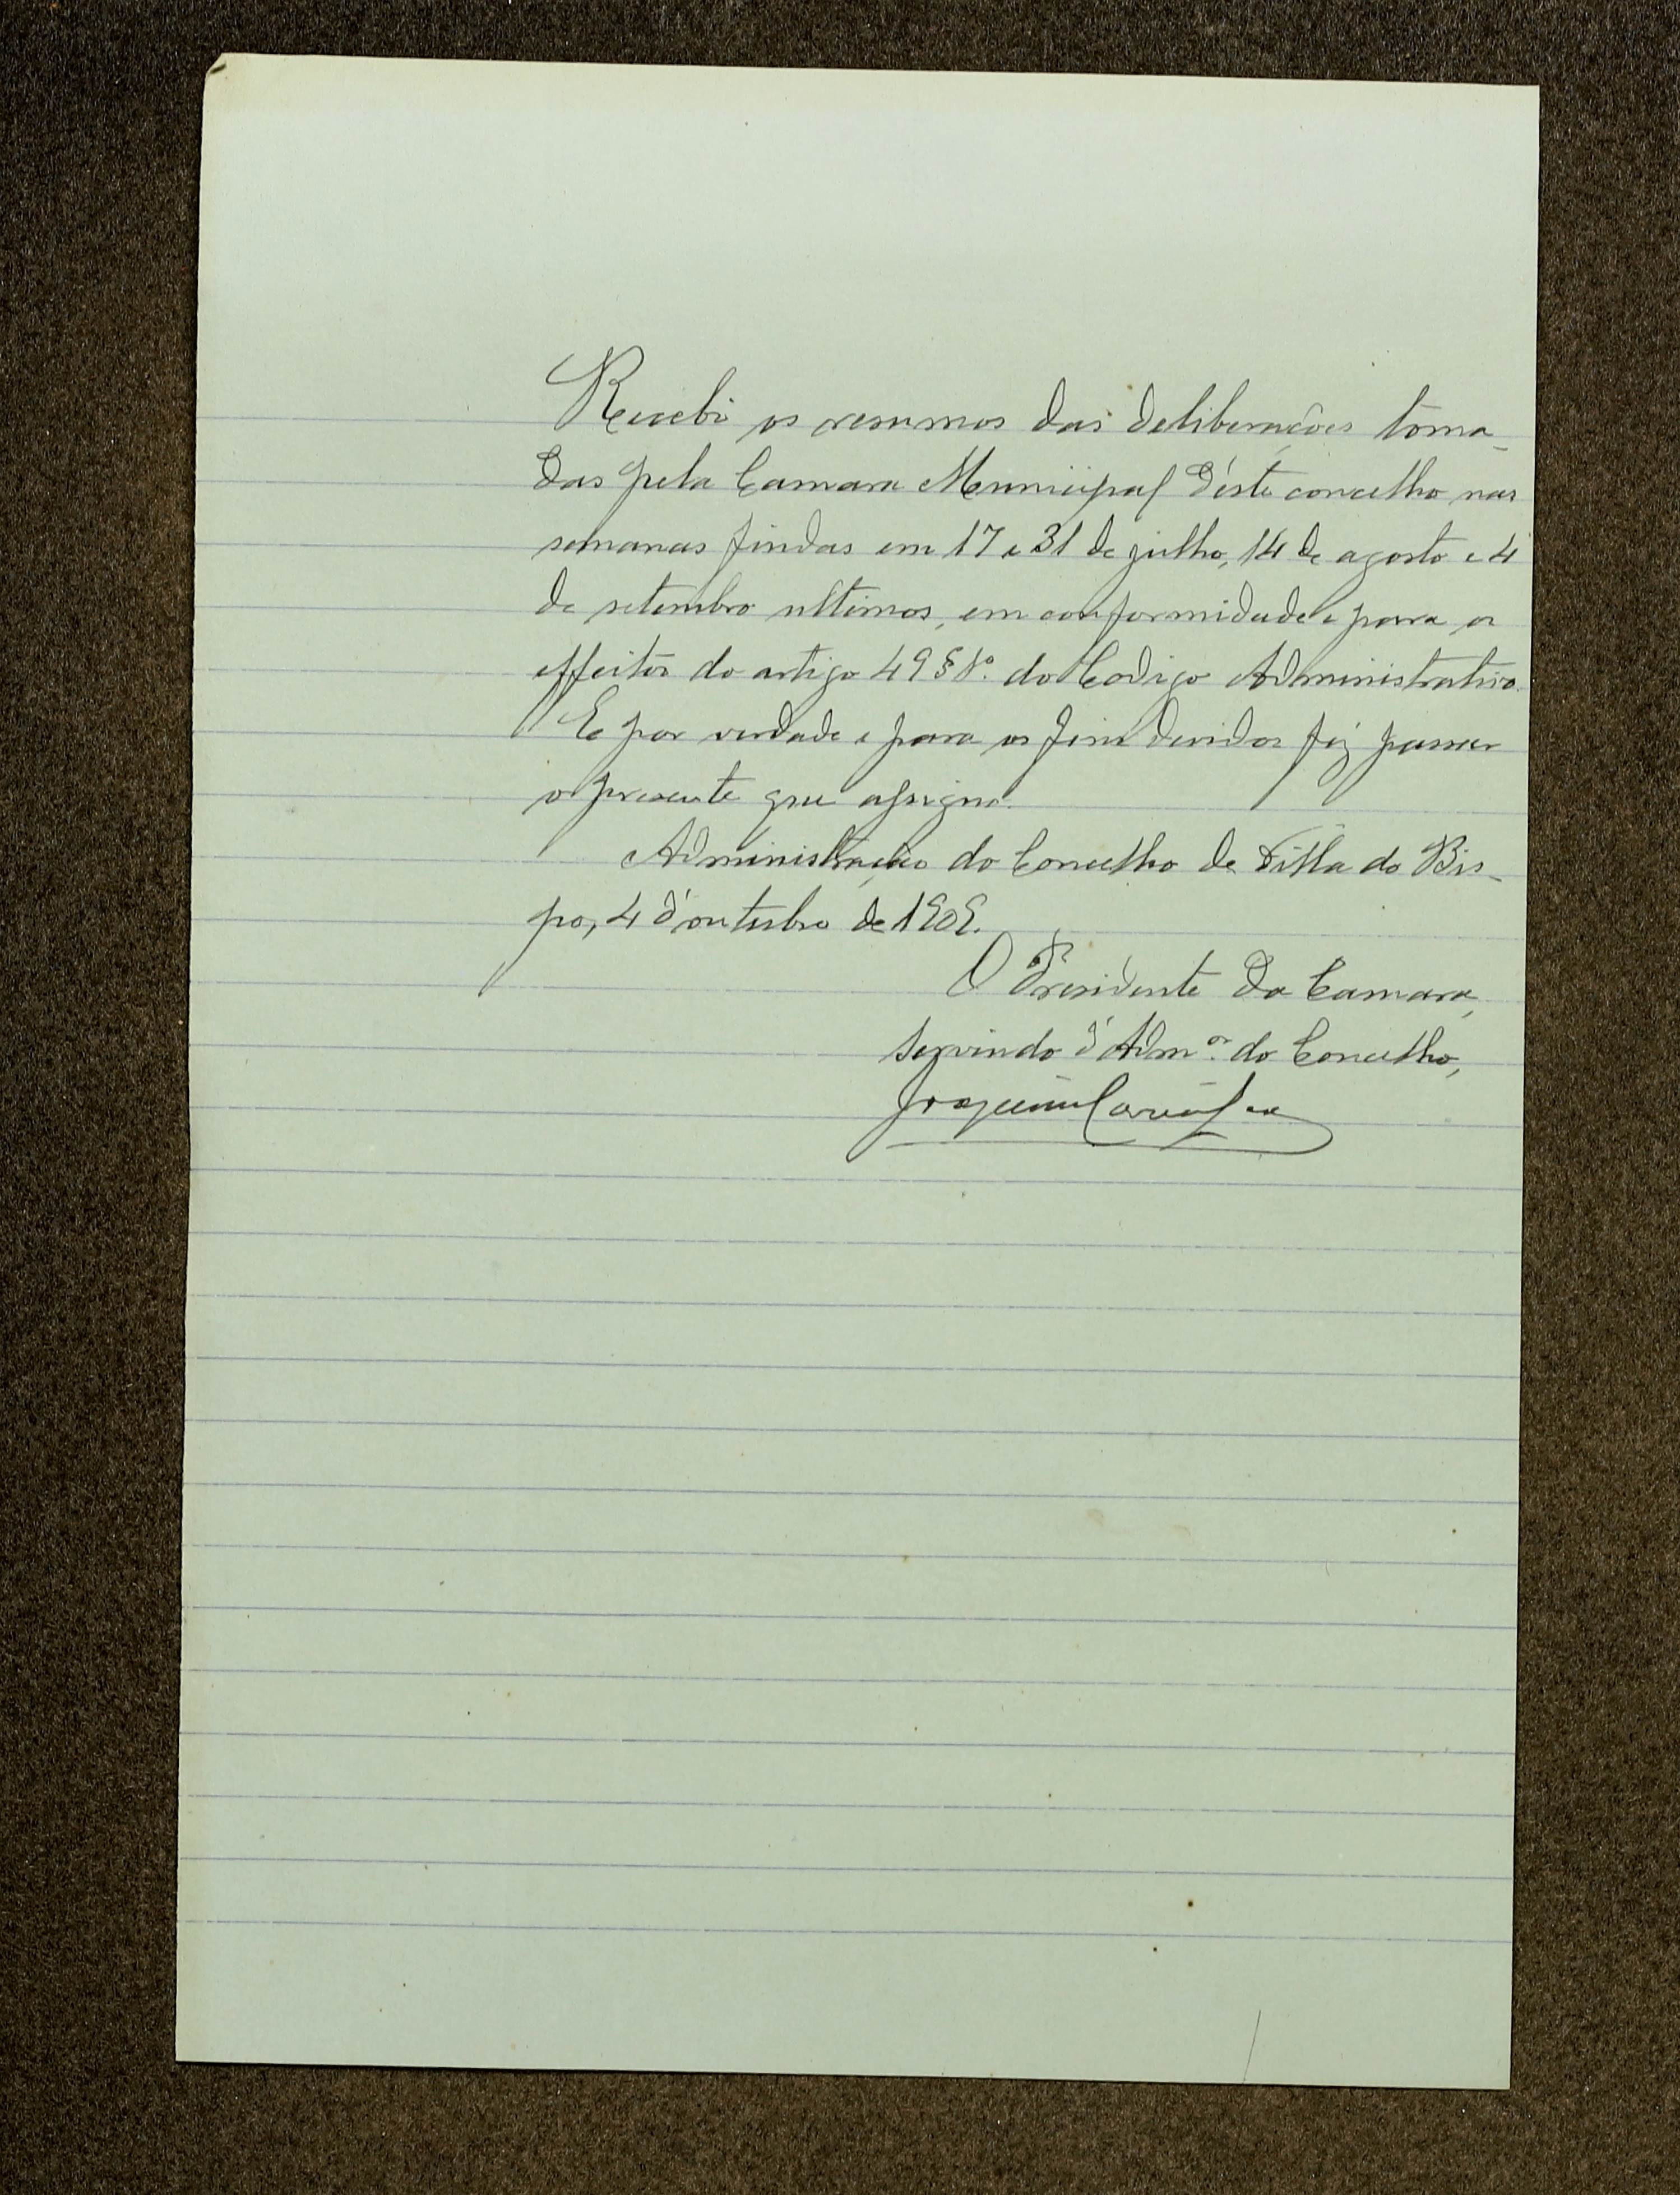 Recebi os resumos das deliberações toma-
das pela Camara Municipal d'este concelho nas
semanas findas em 17 e 31 de julho, 14 de agosto e 4
de setembro ultimos, em conformidade e para os
effeitos do artigo 49 § 1º. do Codigo Administrativo.
E por verdade e para os fins devidos fiz passar
o presente que assigno.
Administração do Concelho de Villa do Bis-
po, 4 d'outubro de 1909.
O Presidente da Camara,
servindo d'Admºr. do Concelho,
Joaquim